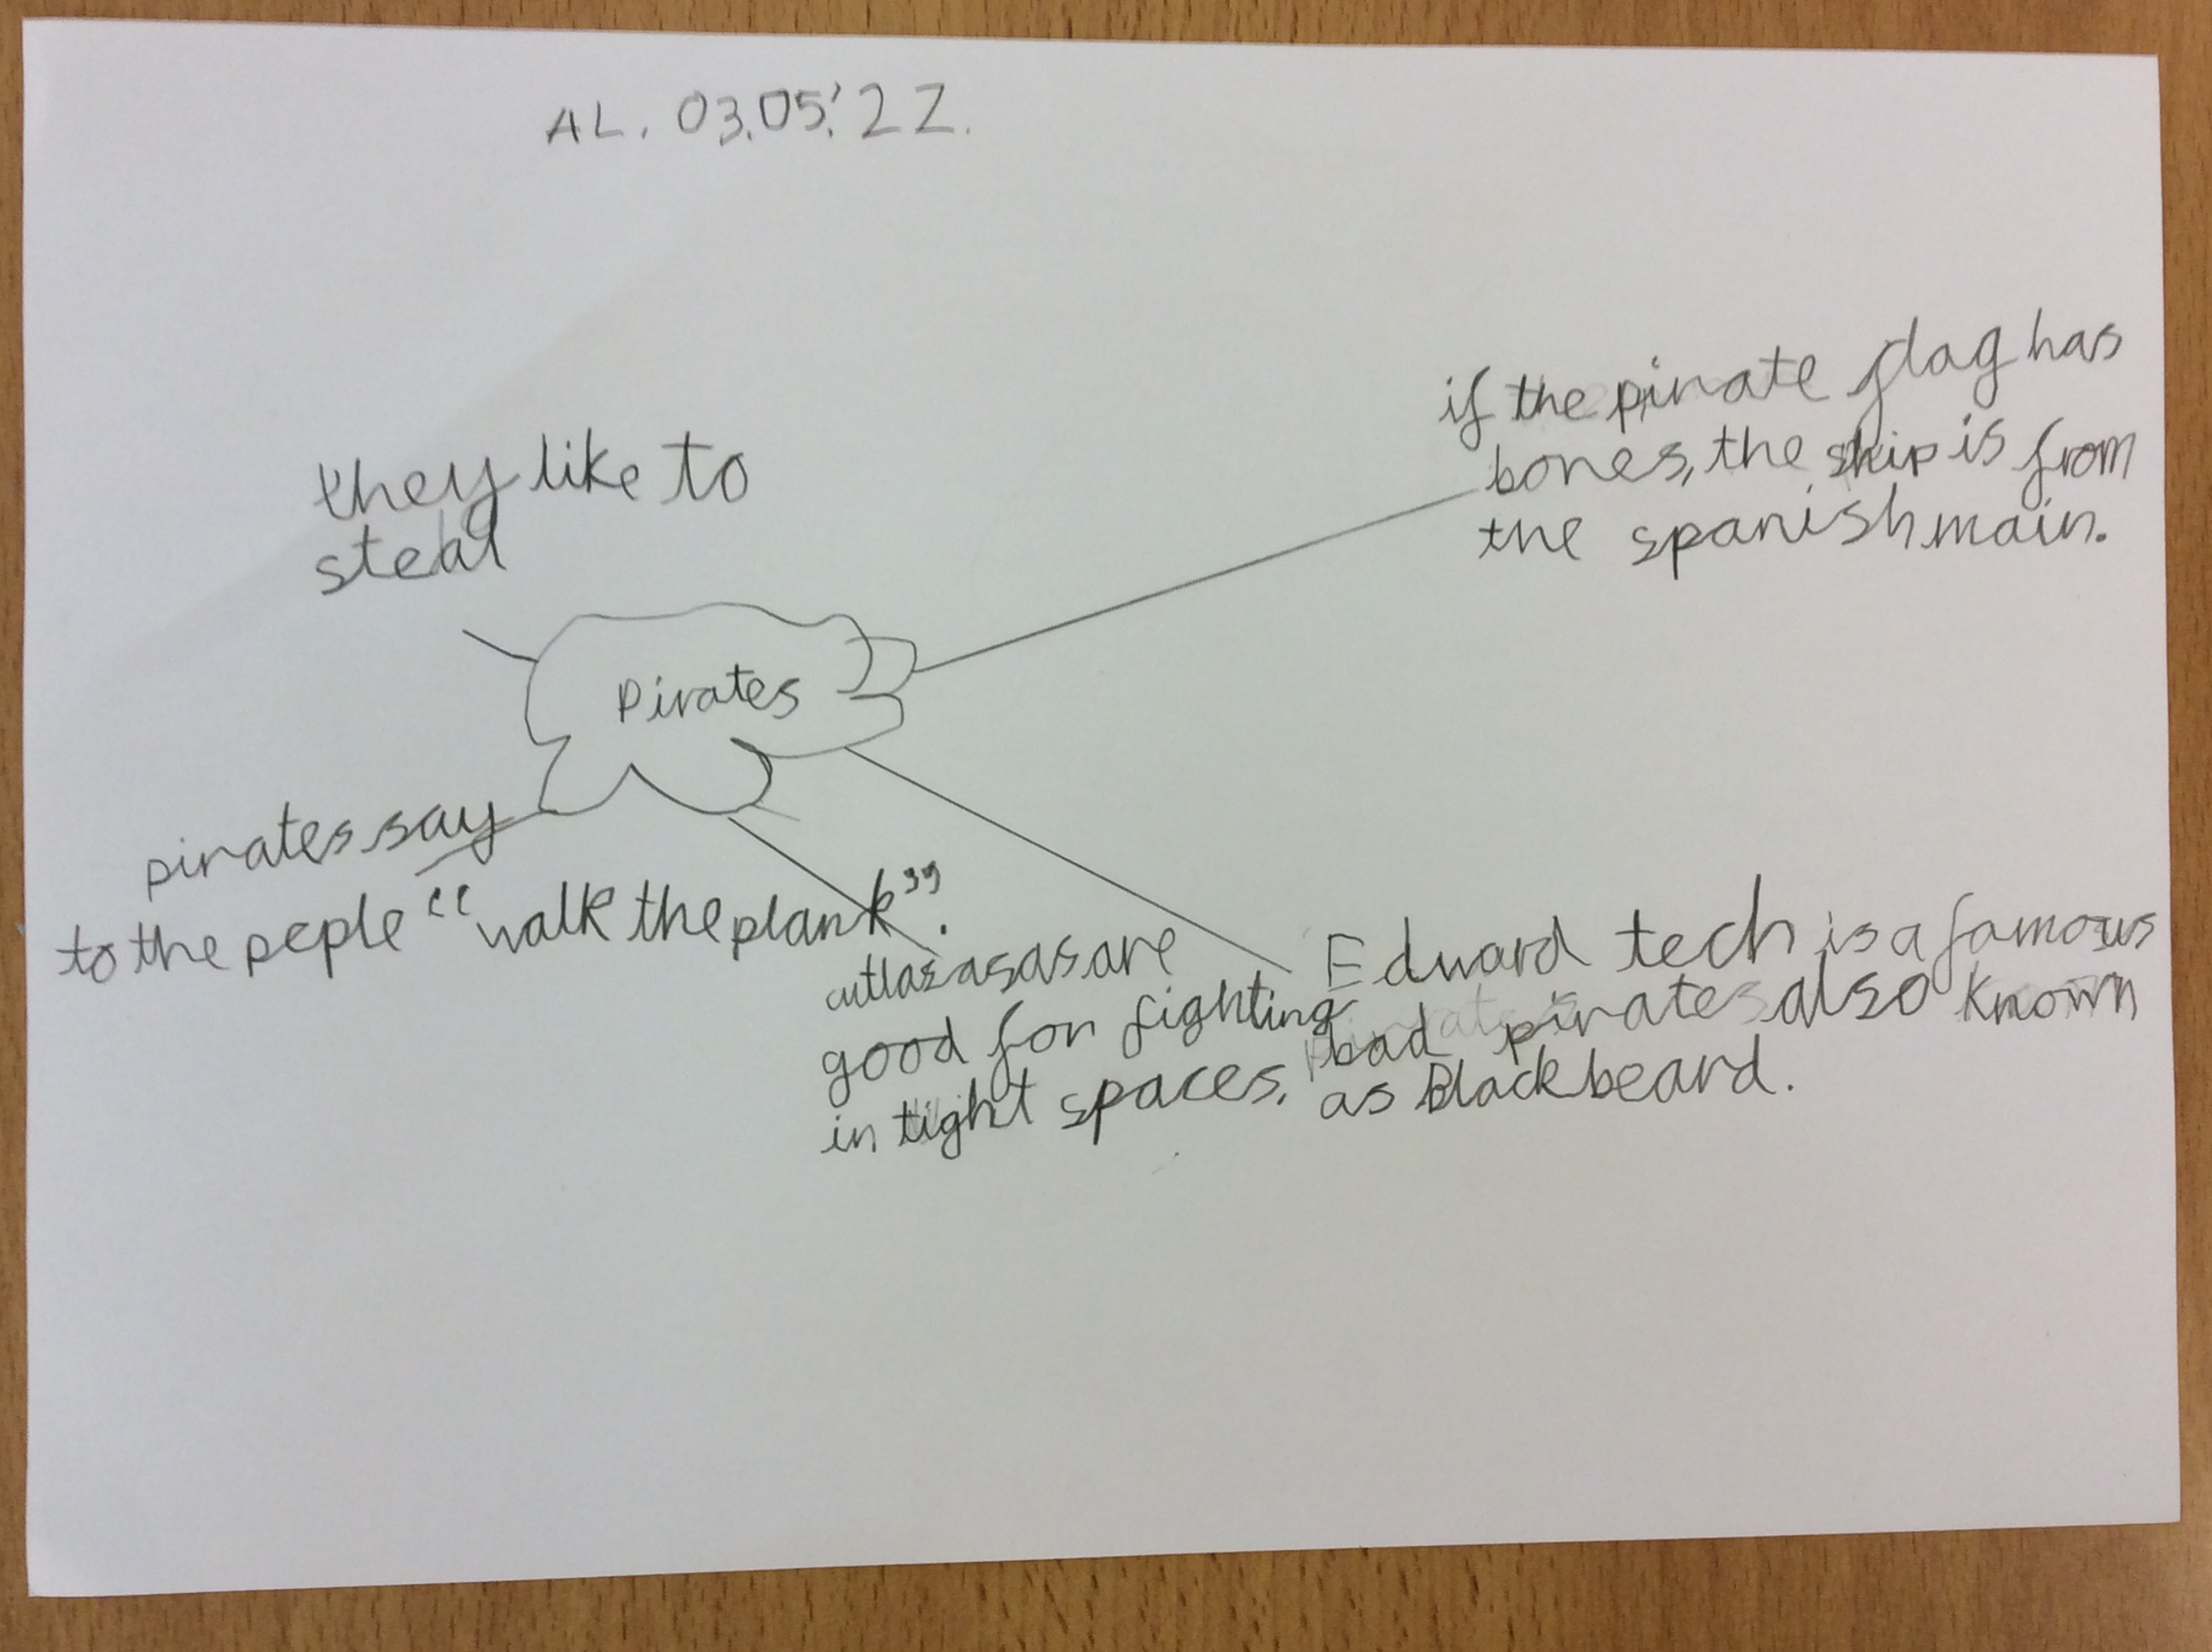 AL. 03.05.'22.
they like to
steal
if the pirate flag has
bones, the ship is from
the spanish main.
Pirates
pirates say
to the peple "walk the plank".
cutlasasas are
good for fighting
in tight spaces.
Edward tech is a famous
bad pirates also known
as Blackbeard.